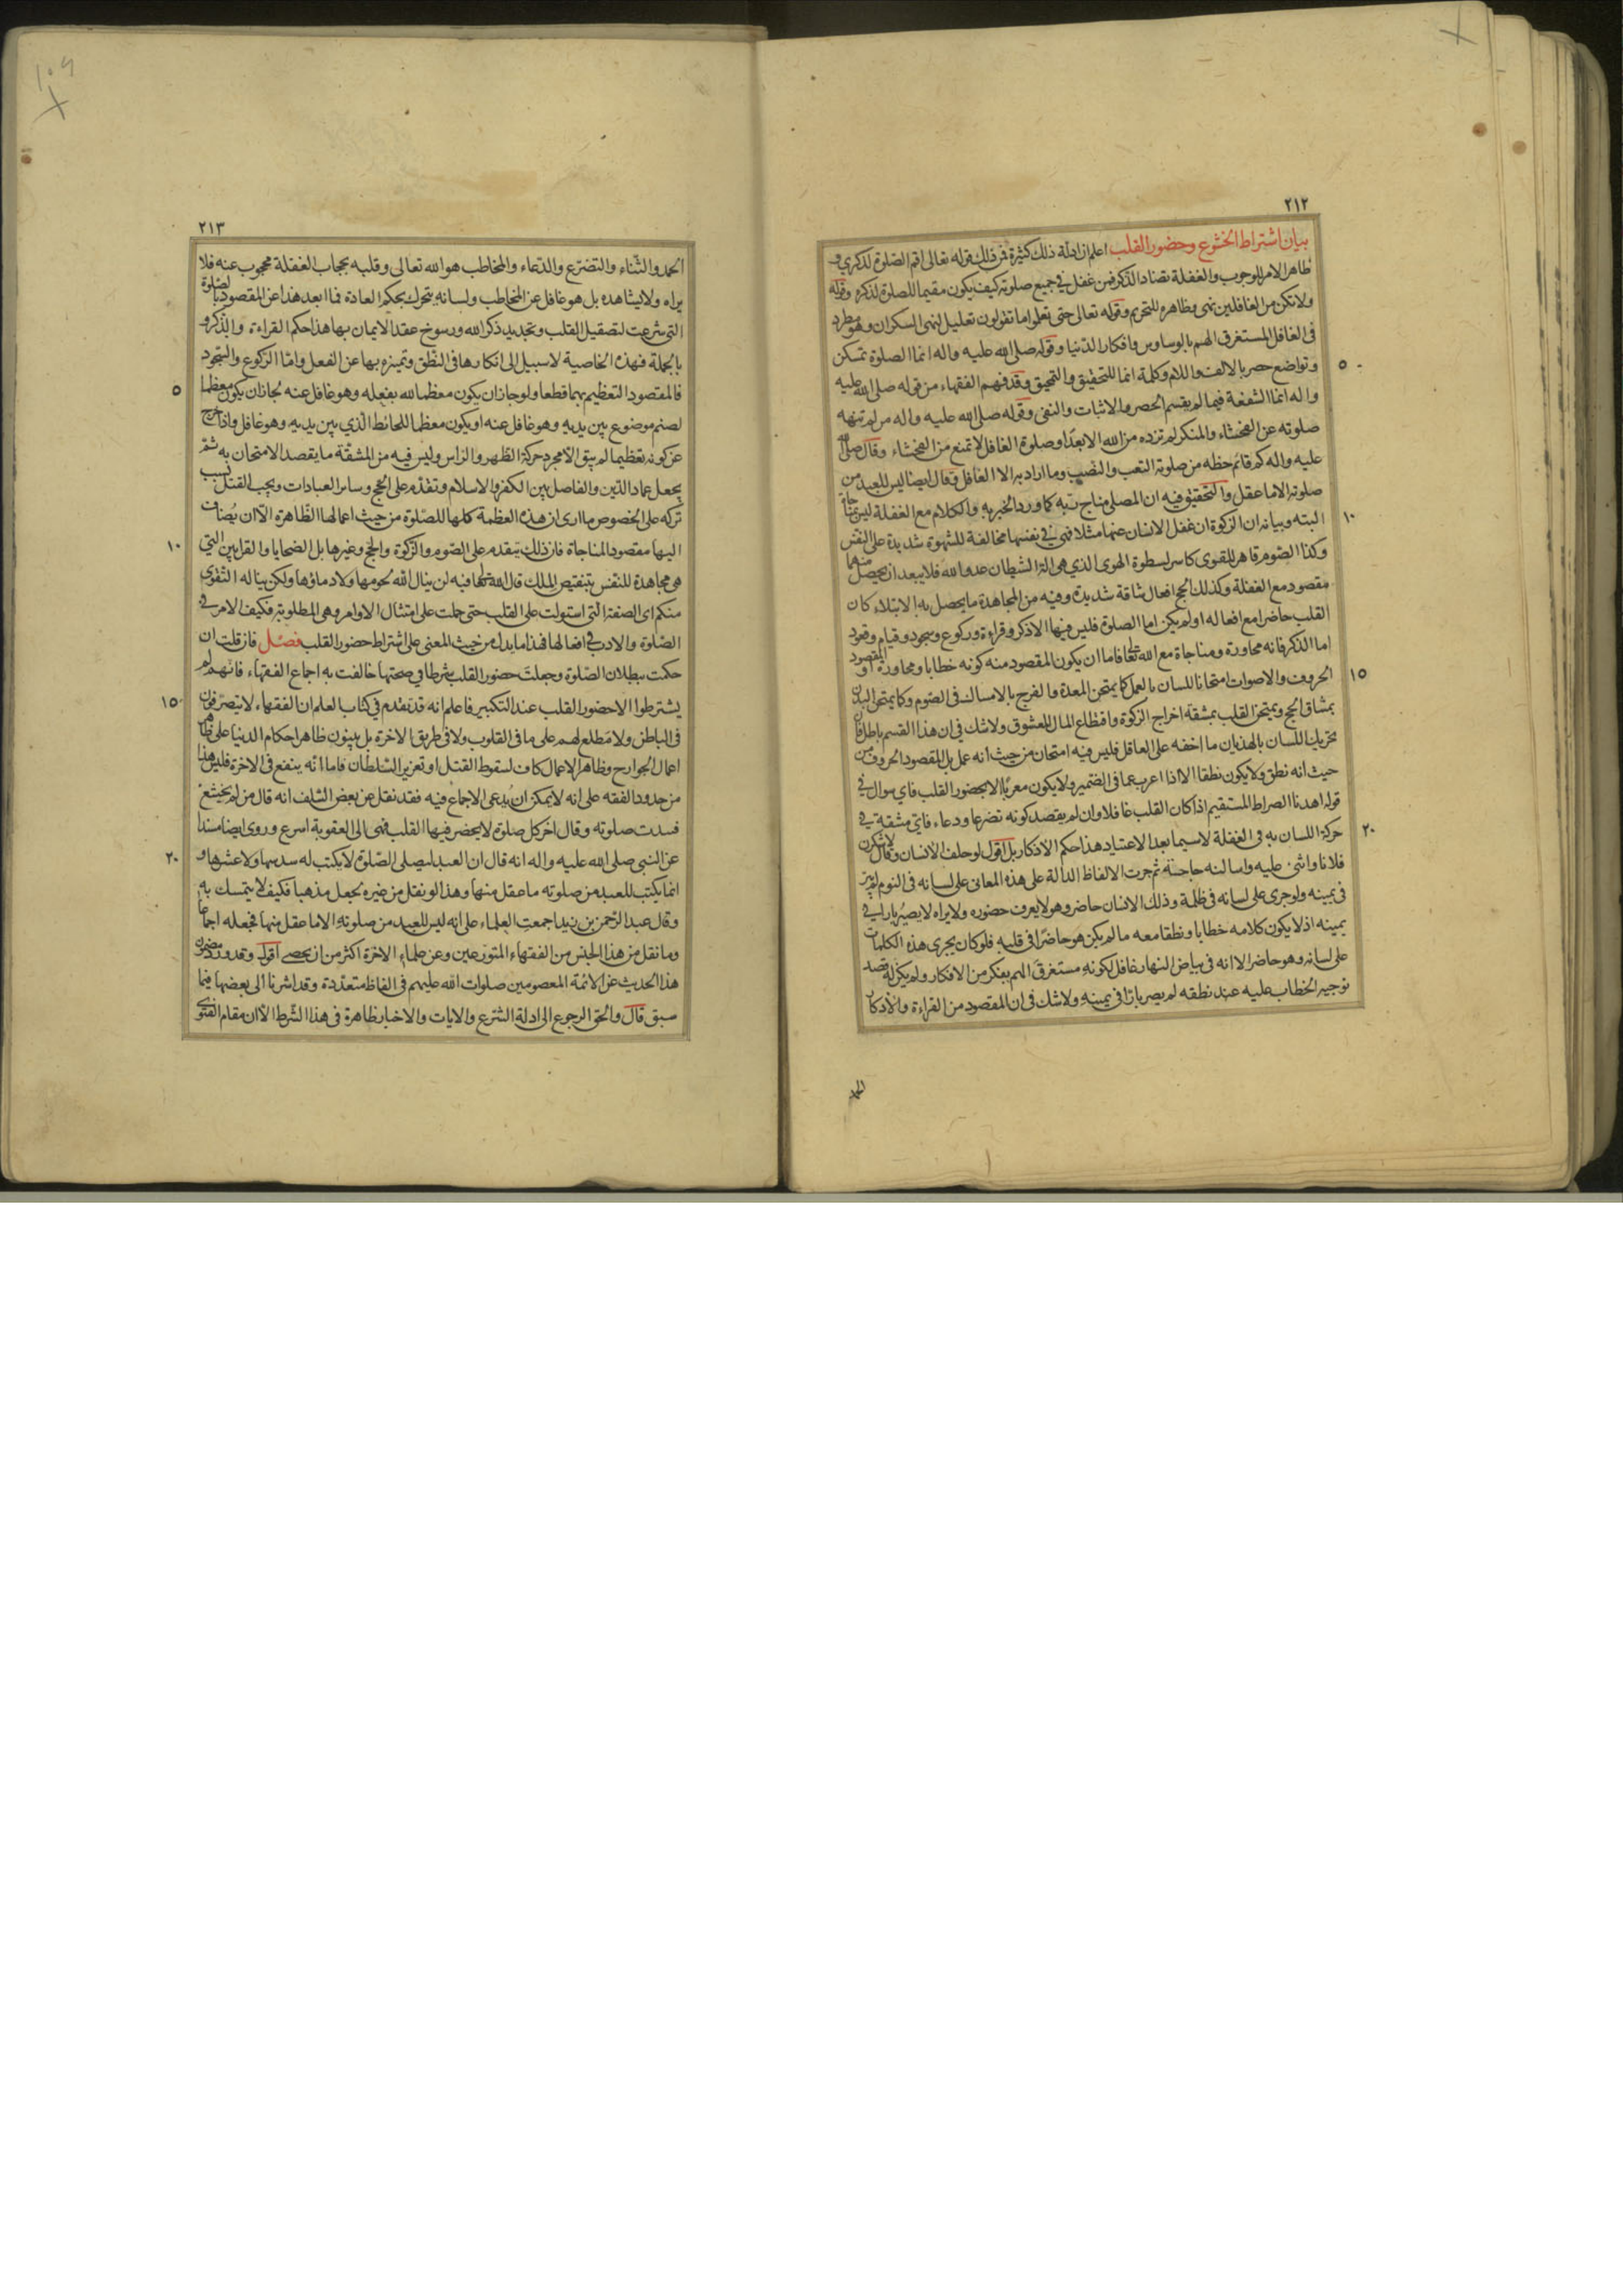 ٢١٢
بيان اشتراط الخشوع وحضور القلب اعلم ان ادلة ذلك كثيرة فمن ذلك قوله تعالى اقم الصلوة لذكري و
ظاهر الامر للوجوب والغفلة تضاد الذكر فمن غفل في جميع صلوته كيف يكون مقيما للصلوة لذكره وقوله
ولا تكن من الغافلين نهى وظاهره للتحريم وقوله تعالى حتى تعلموا ما تقولون تعليل لنهى السكران وهو مطرد
فى الغافل المستغرق الهم بالوساوس وافكار الدنيا وقوله صلى الله عليه واله انما الصلوة تمسكن
٥
وتواضع حصر بالالف واللام وكلمة انما للتحقيق والتمحيق وقد فهم الفقهاء من قوله صلى الله عليه
واله انما الشفعة فيما لم يقسم الحصر والاثبات والنفى وقوله صلى الله عليه واله من لم تنهه
صلوته عن الفحشاء والمنكر لم تزده من الله الا بعدًا وصلوة الغافل لا تمنع من الفحشاء وقال صلى الله
عليه واله كم قائم حظه من صلوته التعب والنصب وما اراد به الا الغافل وقال ايضا ليس للعبد من
صلوته الا ما عقل والتحقيق فيه ان المصلى مناج ربه كما ورد الخبر به والكلام مع الغفلة ليس بمناجاة
١٠
البته وبيانه ان الزكوة ان غفل الانسان عنها مثلا فهى في نفسها مخالفة للشهوة شديدة على النفس
وكذا الصوم قاهر للقوى كاسر لسطوة الهوى الذي هى الة الشيطان عدو الله فلا يبعد ان يحصل منهما
مقصود مع الغفلة وكذلك الحج افعال شاقة شديدة وفيه من المجاهدة ما يحصل به الابتلاء كان
القلب حاضرا مع افعاله او لم يكن اما الصلوة فليس فيها الا ذكر وقراءة وركوع وسجود وقيام وقعود
اما الذكر فانه محاورة ومناجاة مع الله تعالى فاما ان يكون المقصود منه كونه خطابا ومحاورة او المقصود
١٥
الحروف والاصوات امتحانا للسان بالعمل كما يمتحن المعدة والفرج بالامساك فى الصوم وكما يمتحن البدن
بمشاق الحج ويمتحن القلب بمشقة اخراج الزكوة واقتطاع المال المعشوق ولاشك في ان هذا القسم باطل فان
تحريك اللسان بالهذيان ما اخفه على الغافل فليس فيه امتحان من حيث انه عمل بل المقصود الحروف من
حيث انه نطق ولا يكون نطقا الا اذا اعرب عما فى الضمير ولا يكون معربًا الا بحضور القلب فاي سوال في
قوله اهدنا الصراط المستقيم اذا كان القلب غافلا وان لم يقصد كونه تضرعا ودعاء فاىّ مشقة في
٢٠
حركة اللسان به فى الغفلة لا سيما بعد الاعتياد هذا حكم الاذكار بل اقول لو حلف الانسان وقال لاشكرن
فلانا واثنى عليه واساله حاجة ثم جرت الالفاظ الدالة على هذه المعانى على لسانه فى النوم لم يبر
فى يمينه ولو جرى على لسانه فى ظلمة وذلك الانسان حاضر وهو لا يعرف حضوره ولا يراه لا يصيُر بارا في
يمينه اذ لا يكون كلامه خطابا ونطقا معه ما لم يكن هو حاضرًا فى قلبه فلو كان يجرى هذه الكلمات
على لسانه وهو حاضر الا انه فى بياض النهار غافل لكونه مستغرق الهم بفكر من الافكار ولم يكن له قصد
توجيه الخطاب عليه عند نطقه لم يصر بارًا فى يمينه ولا شك فى ان المقصود من القراءة والاذكار
الحمد
٢١٣
الحمد والثناء والتضرّع والدعاء والمخاطب هو الله تعالى وقلبه بحجاب الغفلة محجوب عنه فلا
يراه ولا يشاهده بل هو غافل عن المخاطب ولسانه يتحرك بحكم العادة فما ابعد هذا عن المقصود بالصلوة
التى شرعت لتصقيل القلب وتجديد ذكر الله ورسوخ عقد الايمان بها هذا حكم القراءة والذكر و
بالجملة فهذه الخاصية لا سبيل الى انكارها فى النطق وتميزه بها عن الفعل وامّا الركوع والسجود
٥
فالمقصود التعظيم بهما قطعا ولو جاز ان يكون معظما لله بفعله وهو غافل عنه لجاز ان يكون معظما
لصنم موضوع بين يديه وهو غافل عنه او يكون معظما للحائط الّذي بين يديه وهو غافل واذا خرج
عن كونه تعظيما لم يبق الّا مجرد حركة الظهر والراس وليس فيه من المشقّة ما يقصد الامتحان به ثمّ
يجعل عماد الدين والفاصل بين الكفر والاسلام وتقدّم على الحج وسائر العبادات ويجب القتل بسبب
تركه على الخصوص ما ارى ان هذه العظمة كلها للصّلوة من حيث اعمالها الظاهرة الّا ان يُضاف
١٠
اليها مقصود المناجاة فان ذلك يتقدم على الصّوم والزكوة والحج وغيرها بل الضحايا والقرابين التي
هى مجاهدة للنفس بتنقيص الملك قال الله تعالى فيه لن ينال الله لحومها ولا دماؤها ولكن يناله التقوى
منكم اى الصفة التى استولت على القلب حتى حملت على امتثال الاوامر وهى المطلوبة فكيف الامر في
الصّلوة والادب في افعالها فهذا ما يدل من حيث المعنى على اشتراط حضور القلب فصْل فان قلت ان
حكمت ببطلان الصّلوة وجعلت حضور القلب شرطا في صحتها خالفت به اجماع الفقهاء فانهم لم
١٥
يشترطوا الا حضور القلب عند التكبير فاعلم انه قد تقدم في كتاب العلم ان الفقهاء لا يتصرّفون
فى الباطن ولا مطلع لهم على ما فى القلوب ولا فى طريق الاخرة بل يبنون ظاهر احكام الدنيا على ظاهر
اعمال الجوارح وظاهر الاعمال كاف لسقوط القتل او تعزير السّلطان فاما انّه ينفع فى الاخرة فليس هذا
من حدود الفقه على انه لا يمكن ان يُدعى الاجماع فيه فقد نقل عن بعض السّلف انه قال من لم يخشع
فسدت صلوته وقال اخر كل صلوة لا يحضر فيها القلب فهى الى العقوبة اسرع وروى ايضا مسندا
٢٠
عن النبى صلى الله عليه واله انه قال ان العبد ليصلى الصّلوة لا يكتب له سدسها ولا عشرها و
انما يكتب للعبد من صلوته ما عقل منها وهذا لو نقل من غيره لجعل مذهبا فكيف لا يتمسك به
وقال عبد الرّحمن بن زيد اجمعت العلماء على انه ليس للعبد من صلوته الا ما عقل منها فجعله اجماعا
وما نقل من هذا الجنس من الفقهاء المتورعين وعن علماء الاخرة اكثر من ان يحصى اقول وقد ورد مضمون
هذا الحديث عن الائمة المعصومين صلوات الله عليهم فى الفاظ متعدّدة وقد اشرنا الى بعضها فيما
سبق قال والحق الرجوع الى ادلة الشرع والايات والاخبار ظاهرة فى هذا الشّرط الّا ان مقام الفتوى